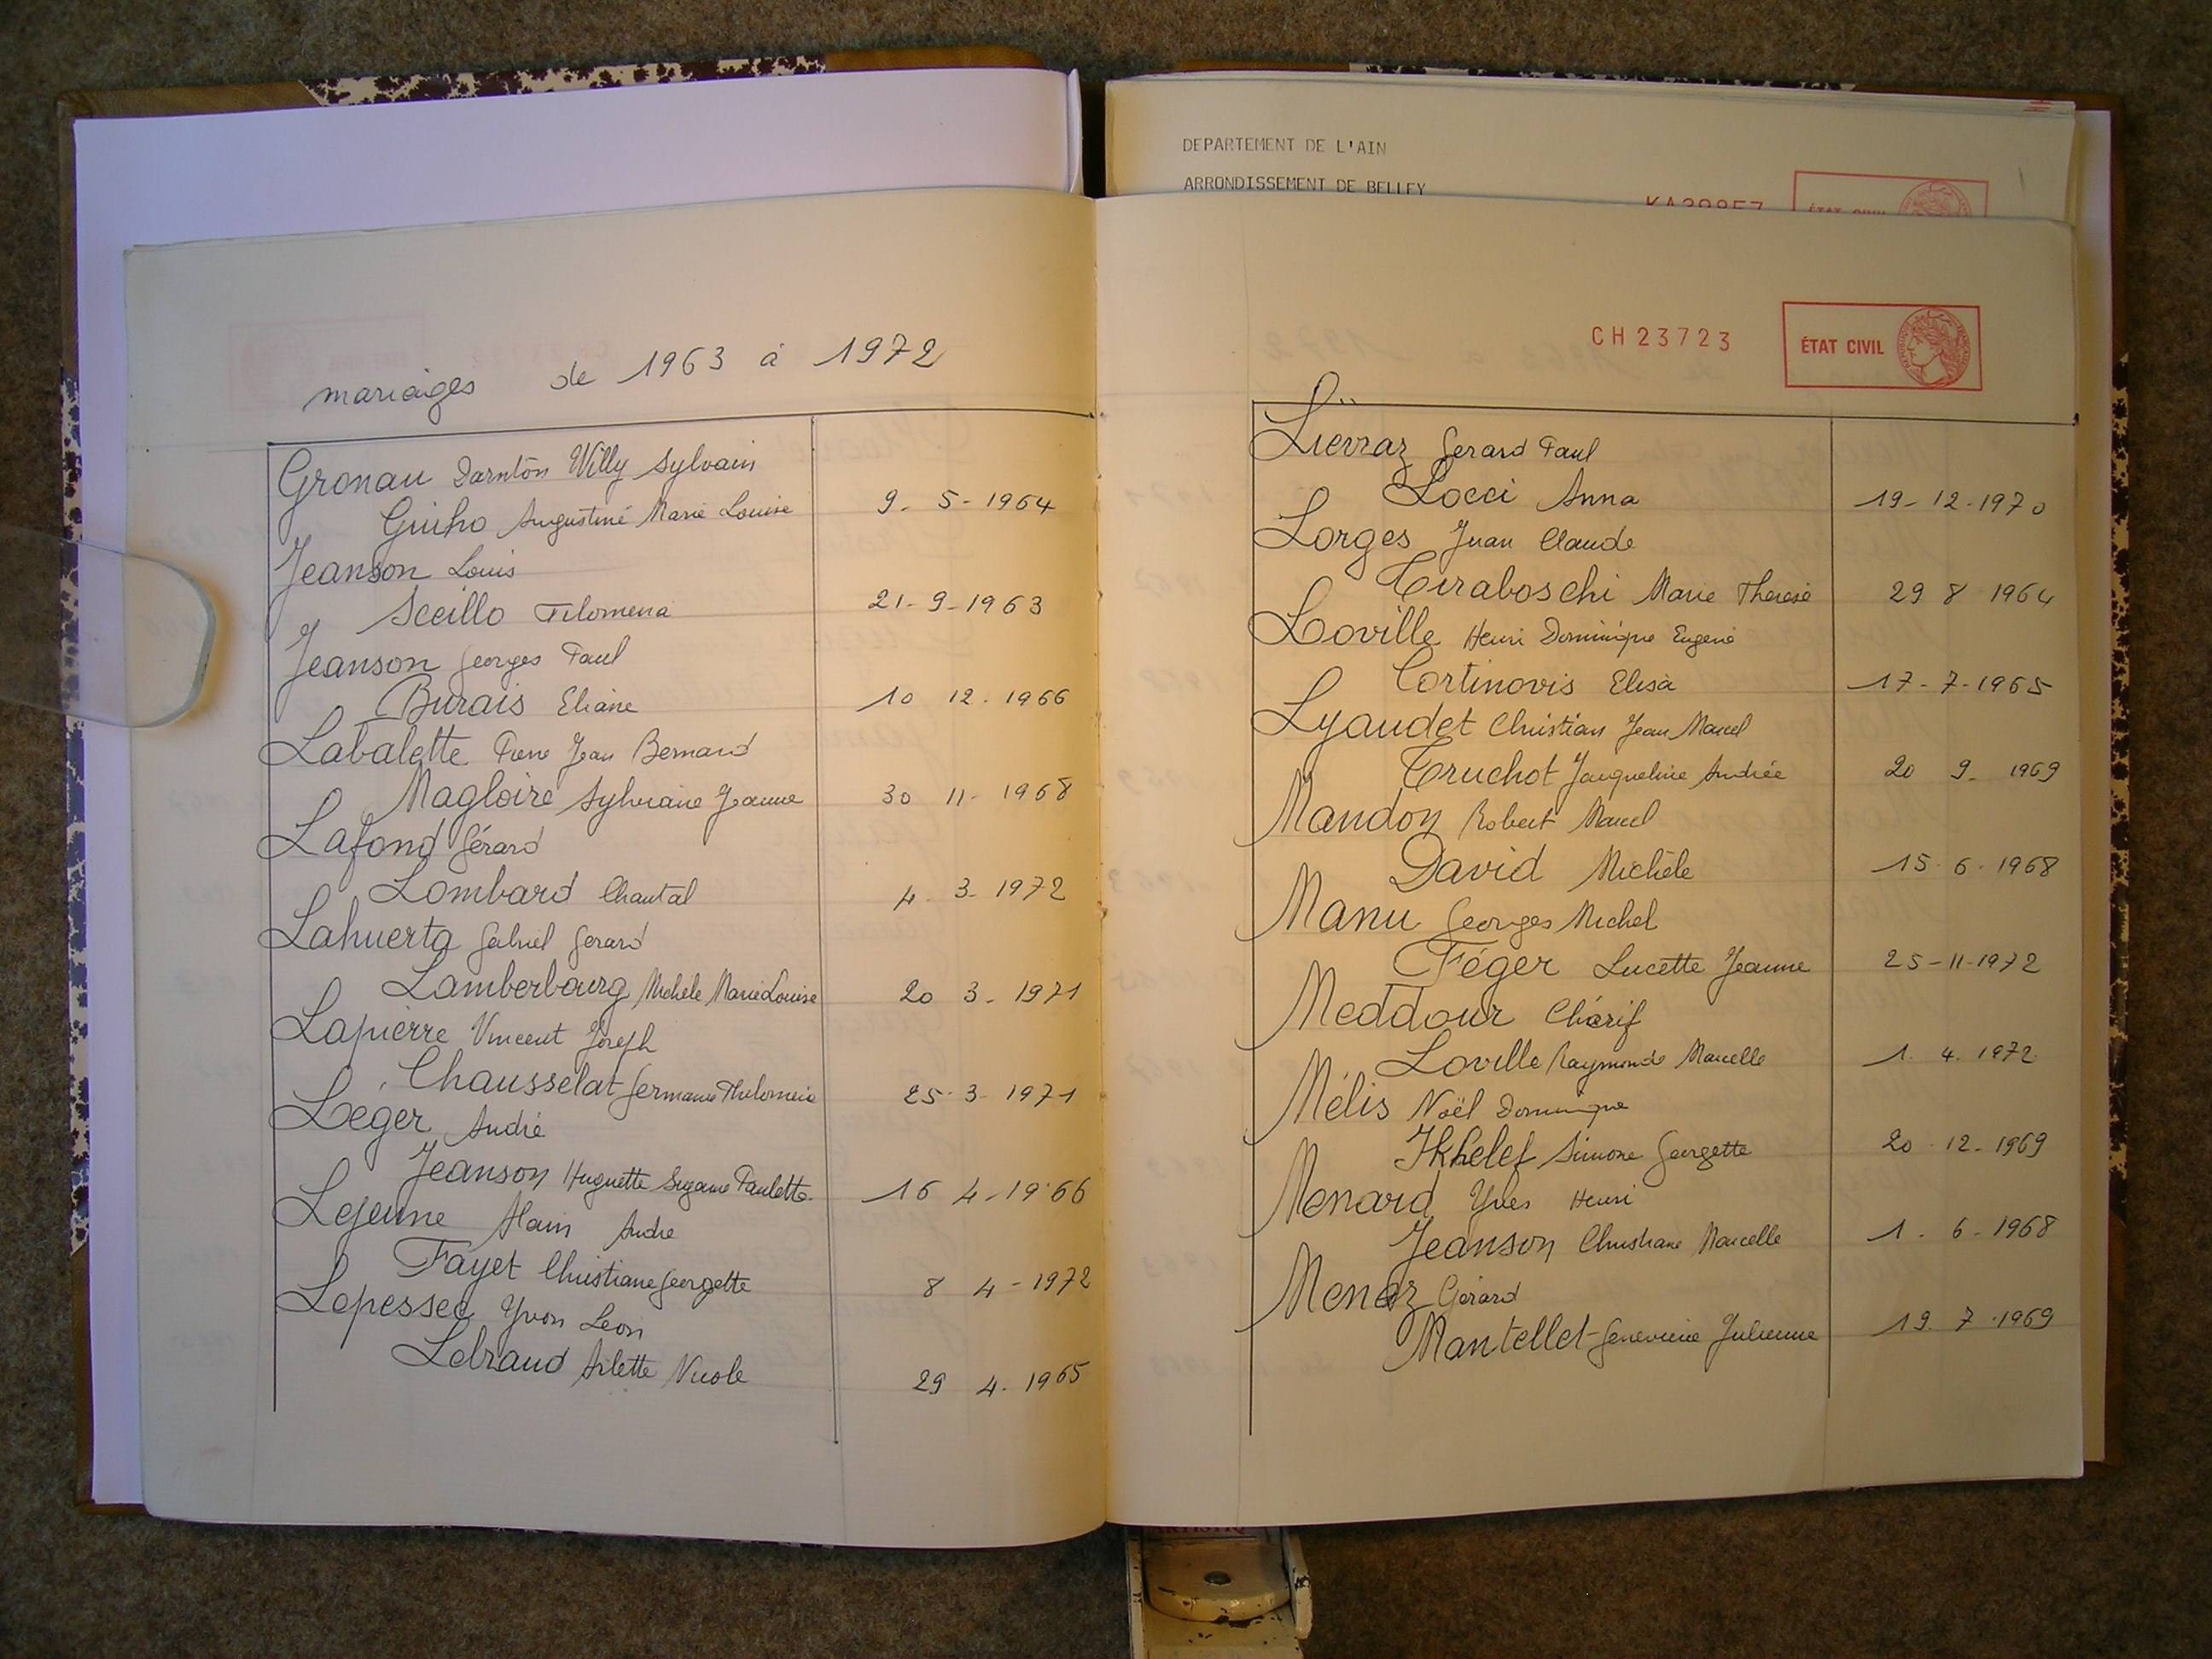 mariages de 1963 à 1972
Gronau Darnton Willy Sylvain
Guiho Augustine Marie Louise 9. 5-1964
Jeanson Louis
Sceillo Filomena 21-9-1963
Jeanson Georges Paul
Burais Eliane 10 12. 1966
Labalette Pierre Jean Bernard
Magloire Sylviane Jeanne 30 11- 1968
Lafond Gérard
Lombard Chantal 4. 3- 1972
Lahuerta Gabriel Gerard
Lamberbourg Michèle Marie Louise 20 3. 1971
Lapierre Vincent Joseph
Chausselat Germaine 25. 3- 1971
Leger André
Jeanson Huguette Suzanne Paulette 16 4-1966
Lejeune Alain Andre
Fayet Christiane Georgette 8 4-1972
Lepessec Yvon Leon
Lebraud Arlette Nicole 29 4. 1965
DEPARTEMENT DE L'AIN
ARRONDISSEMENT DE BELLEY
CH 23723 ÉTAT CIVIL
Lïerraz Gerard Paul
Locci Anna 19-12-1970
Lorges Jean Claude
Tiraboschi Marie Therese 29 8 1964
Loville Henri Dominique Eugene
Cortinovis Elisa 17-7-1965
Lyaudet Christian Jean Marcel
Truchot Jacqueline Andrée 20 9- 1969
Mandon Robert Marcel
David Michèle 15.6.1968
Manu Georges Michel
Féger Lucette Jeanne 25-11-1972
Meddour Chérif
Loville Raymonde Marcelle 1. 4. 1972
Mélis Noël Dominique
Ikhelef Simone Georgette 20.12.1969
Menard Yves Henri
Jeanson Christiane Marcelle 1. 6-1968
Menaz Gérard
Mantellet Genevieve Julienne 19. 7.1969